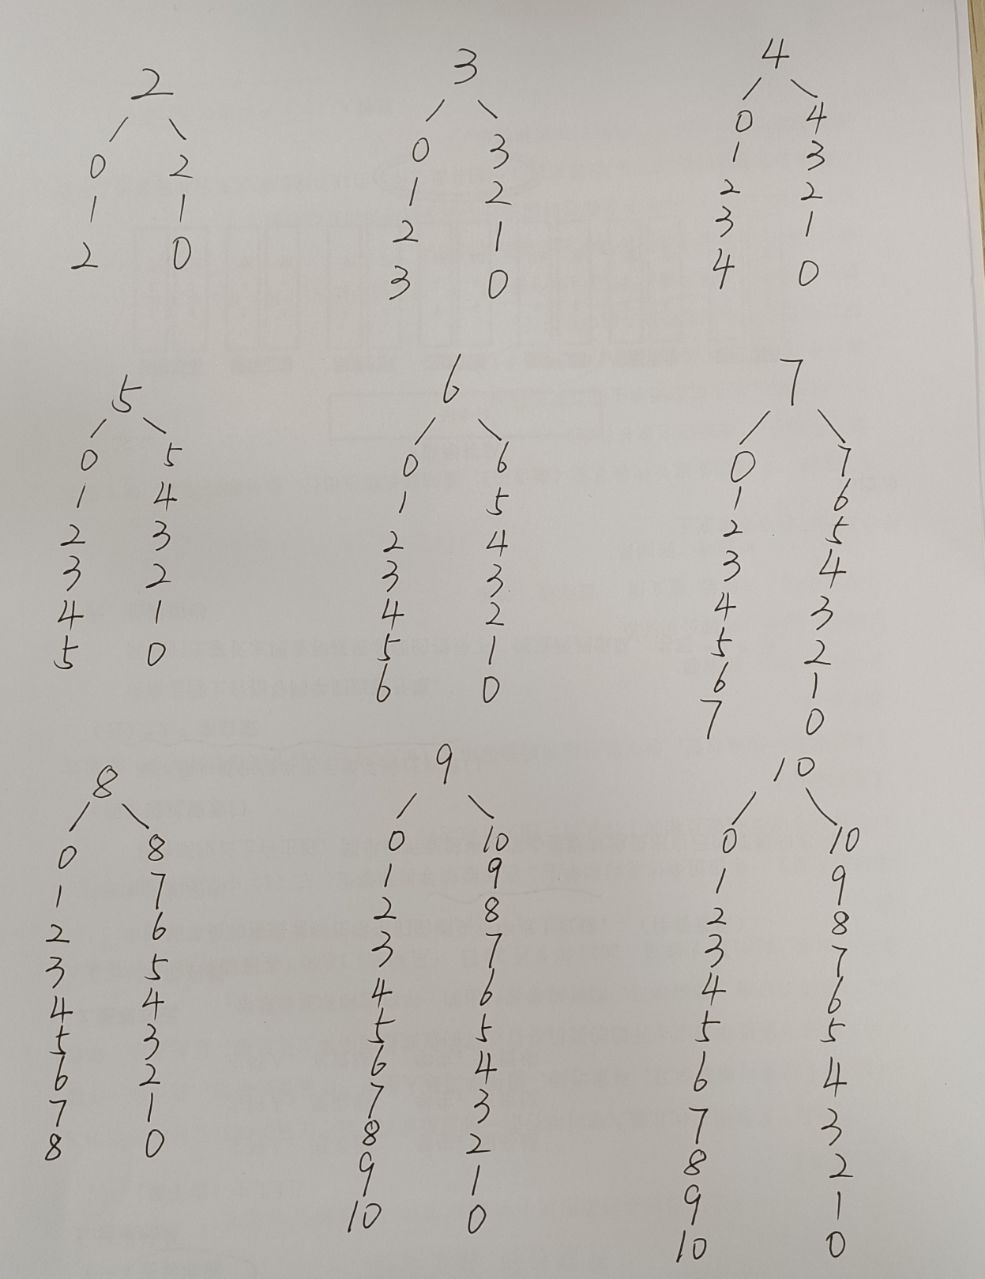 2 3 4
0 2
1 1
2 0
0 3
1 2
2 1
3 0
0 4
1 3
2 2
3 1
4 0
5 6 7
0 5
1 4
2 3
3 2
4 1
5 0
0 6
1 5
2 4
3 3
4 2
5 1
6 0
0 7
1 6
2 5
3 4
4 3
5 2
6 1
7 0
8 9 10
0 8
1 7
2 6
3 5
4 4
5 3
6 2
7 1
8 0
0 10
1 9
2 8
3 7
4 6
5 5
6 4
7 3
8 2
9 1
10 0
0 10
1 9
2 8
3 7
4 6
5 5
6 4
7 3
8 2
9 1
10 0